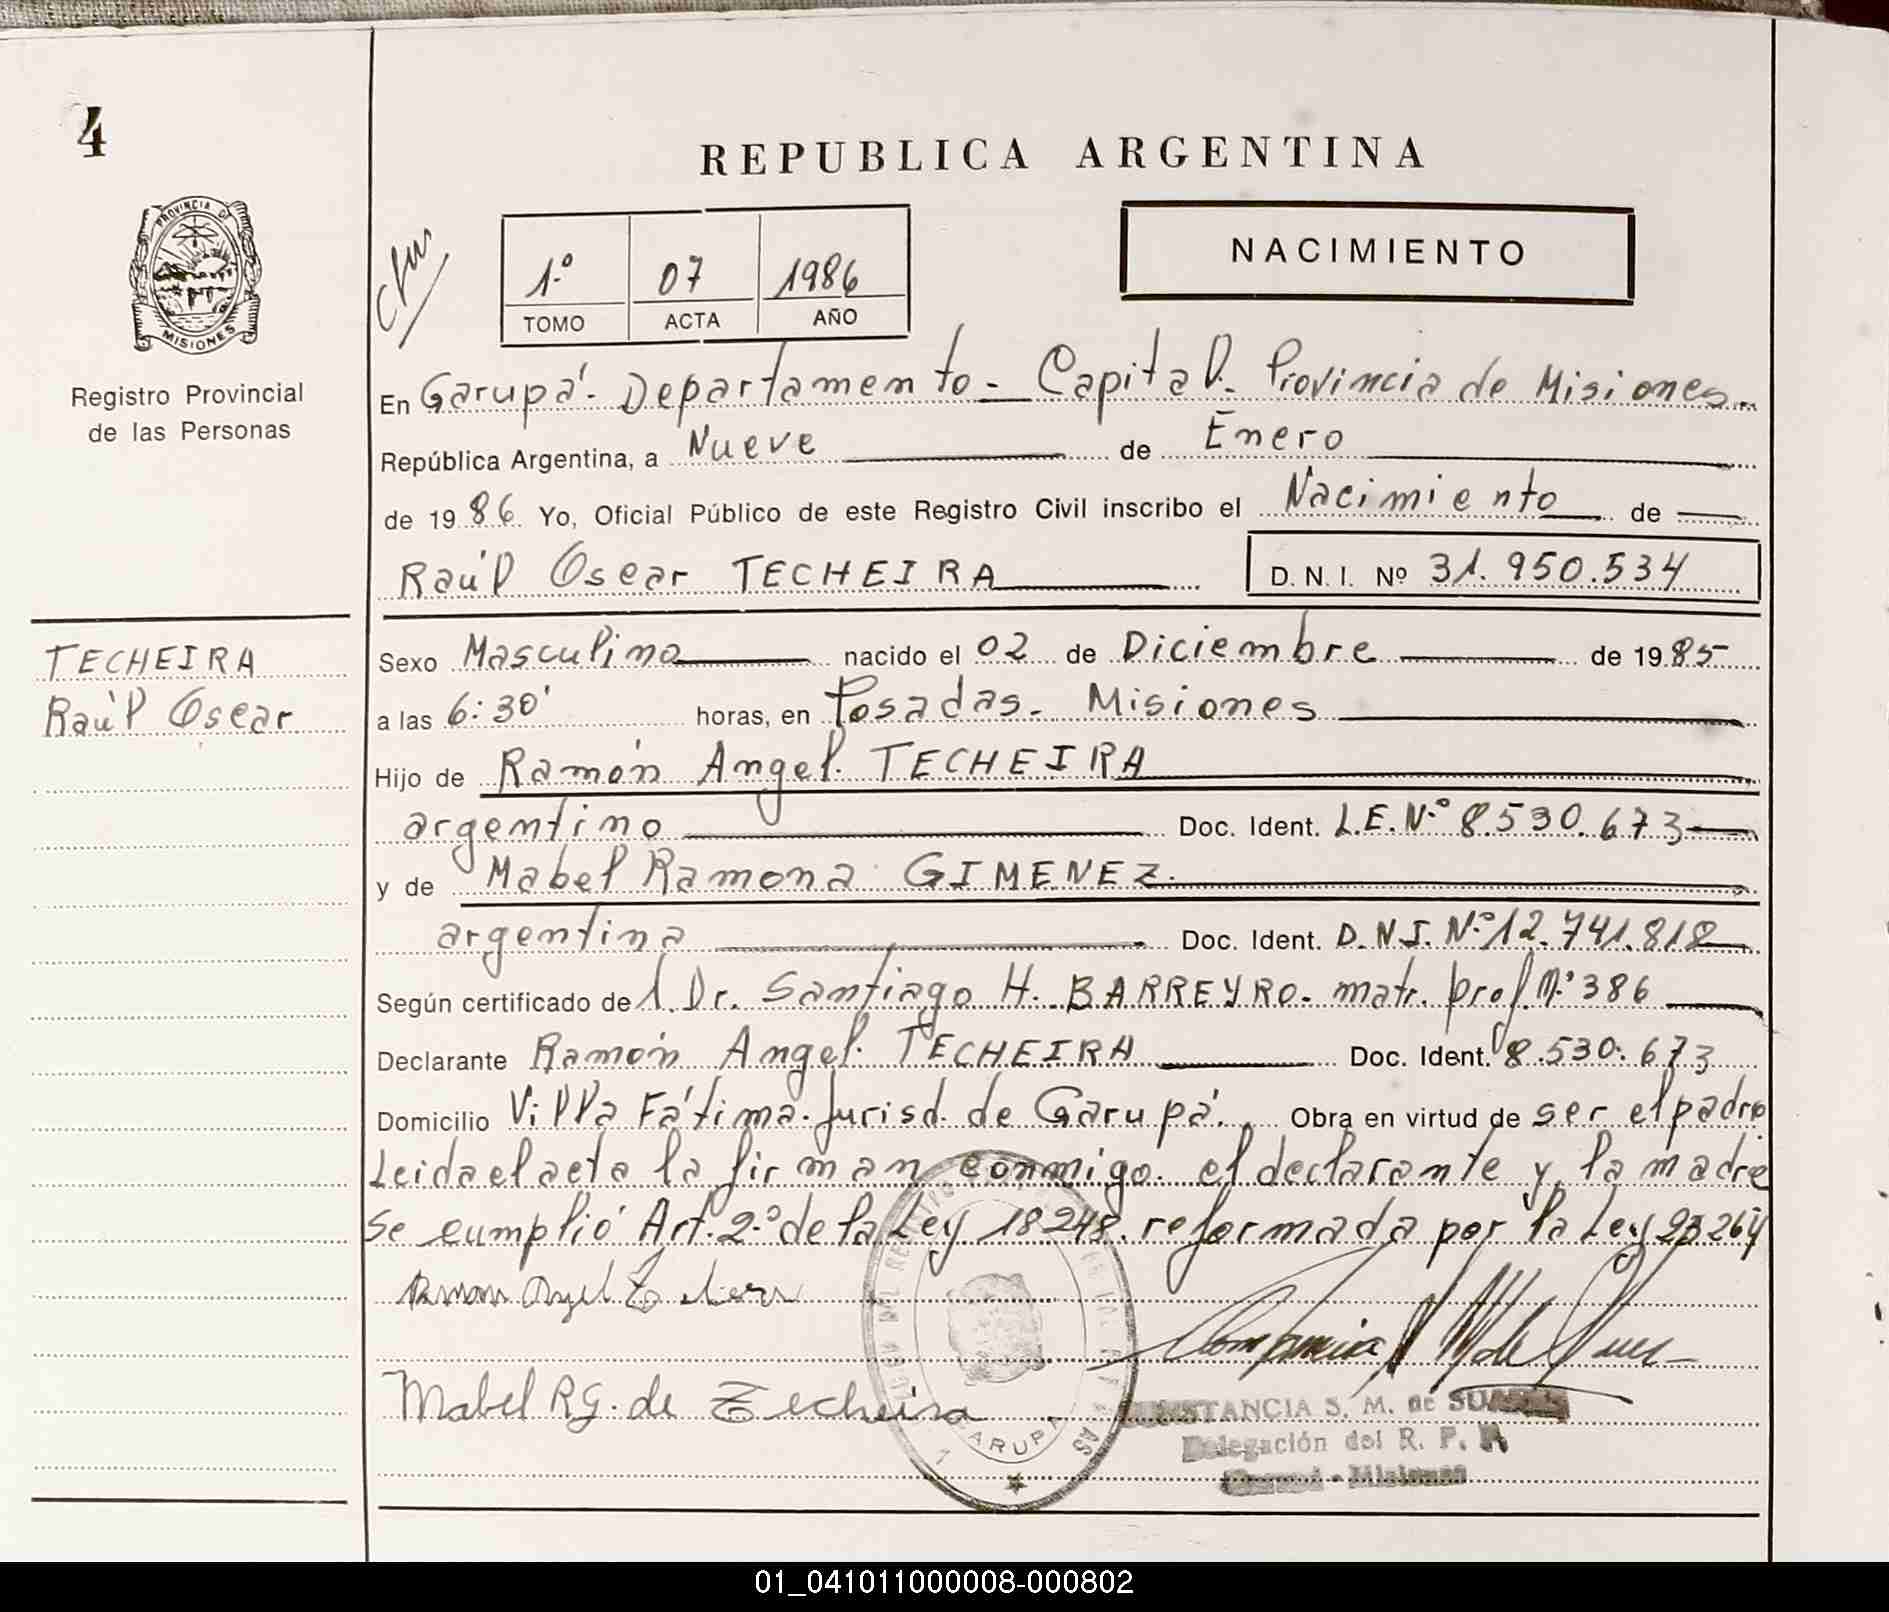 4
REPUBLICA ARGENTINA
PROVINCIA DE MISIONES
Registro Provincial
de las Personas
1º 07 1986
TOMO ACTA AÑO
NACIMIENTO
En Garupá - Departamento - Capital. Provincia de Misiones
República Argentina, a Nueve de Enero
de 1986. Yo, Oficial Público de este Registro Civil inscribo el Nacimiento de
Raúl Oscar TECHEIRA D. N. I. Nº 31.950.534
TECHEIRA
Raúl Oscar
Sexo Masculino nacido el 02 de Diciembre de 1985
a las 6:30' horas, en Posadas - Misiones
Hijo de Ramón Angel TECHEIRA
argentino Doc. Ident. L.E. Nº 8.530.673
y de Mabel Ramona GIMENEZ
argentina Doc. Ident. D.N.I. Nº 12.741.818
Según certificado del Dr. Santiago H. BARREYRO - matr. prof. Nº 386
Declarante Ramón Angel TECHEIRA Doc. Ident. 8.530.673
Domicilio Villa Fátima - Jurisd. de Garupá. Obra en virtud de ser el padre
Leida el acta la firman conmigo el declarante y la madre
Se cumplió Art. 2º de la Ley 18248 reformada por la Ley 23264
Ramon Angel Techeira
Mabel R G. de Techeira
GARUPA
CONSTANCIA S. M. de
Delegación del R. P. P.
Garupá - Misiones
01_041011000008-000802